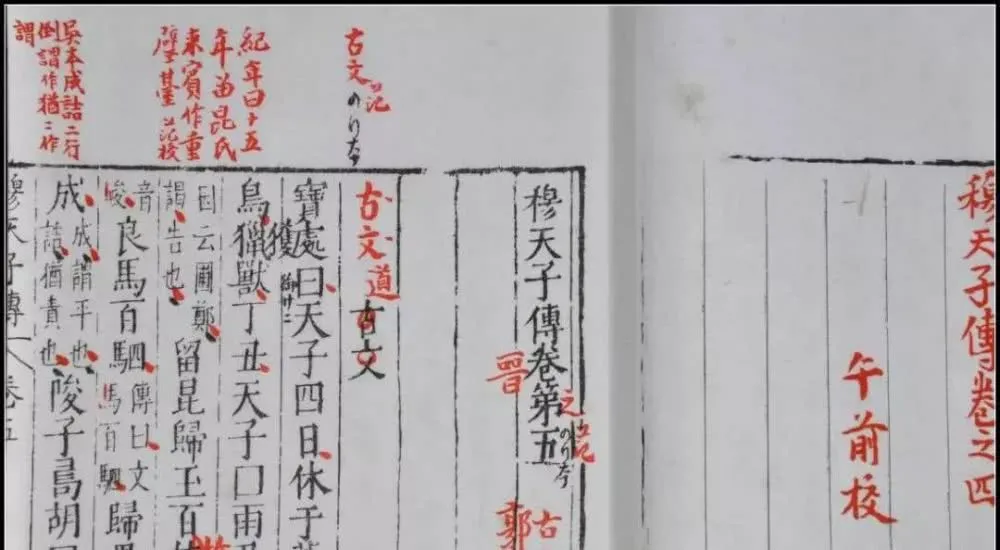 穆天子傳卷之四
午前校
穆天子傳卷第五
之
晉
古
郭
古文
范
古文道
古文
寶處曰天子四日休于
獲
紀年曰十五
年留昆氏
來賓作重
壁臺 范校
鳥獵獸丁丑天子口雨乃
因云圃鄭
謂告也
留昆歸玉百
音
駿
良馬百駟
傳曰文
馬百駟
歸
吳本成詰二行
倒謂作猶二作
謂
成
成謂平也
詰猶責也
陖子䳢胡
穆天子傳
卷五